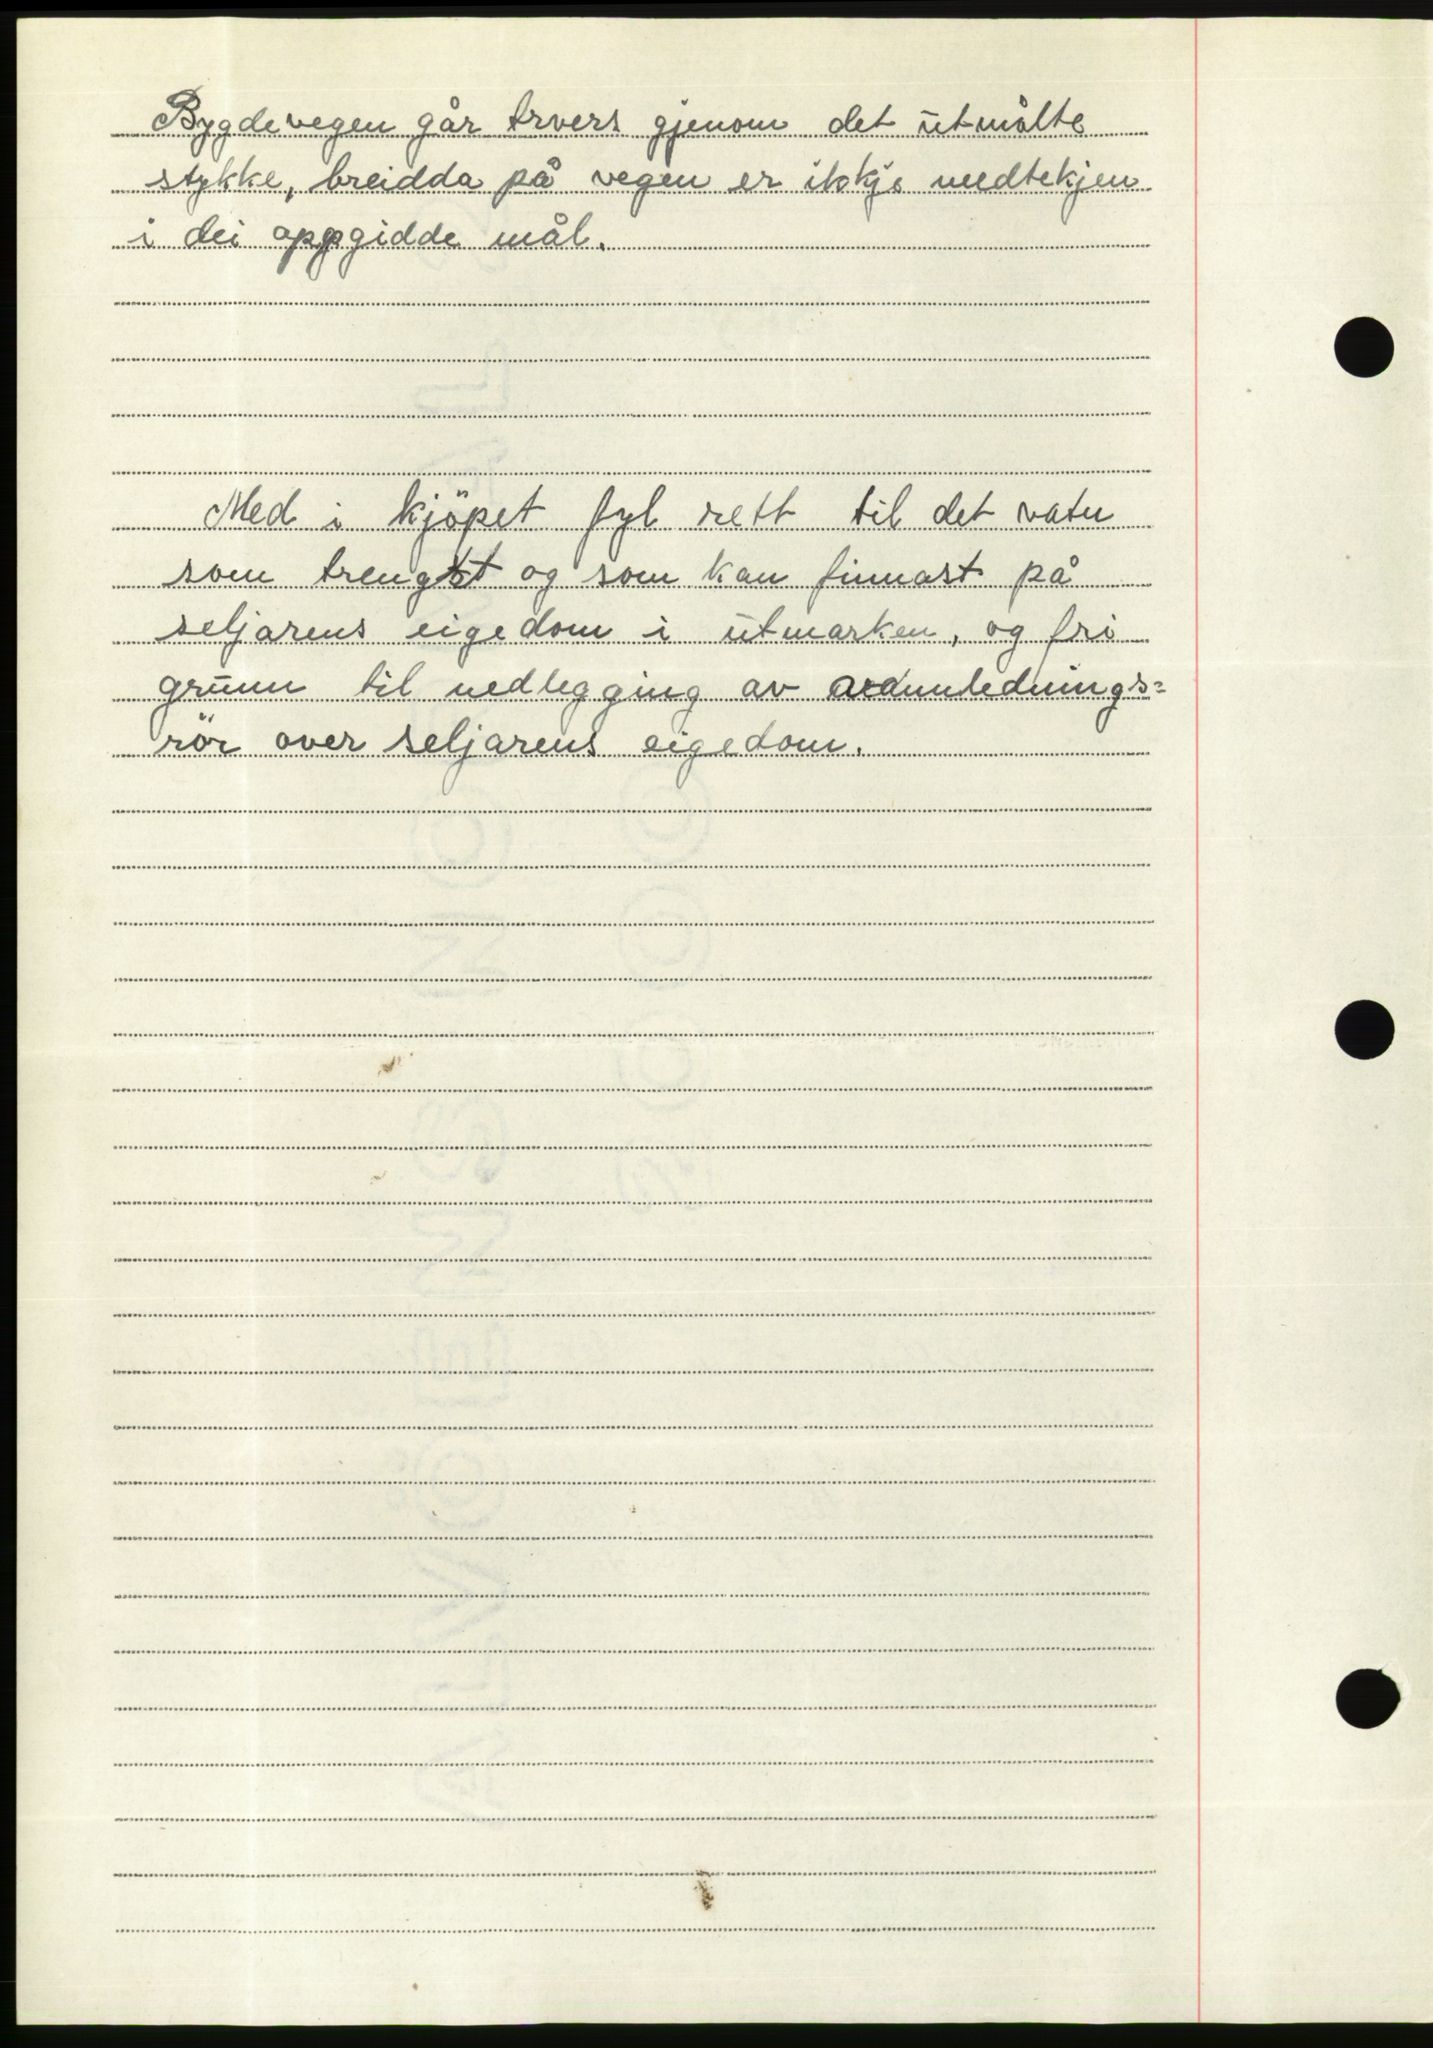 Bygdevegen går trvers gjenom det utmålte
stykke, breidda på vegen er ikkje medtekjen
i dei oppgidde mål.
Med i kjöpet fyl rett til det vatn
som trengst og som kan finnast på
seljarens eigedom i utmarken, og fri
grunn til nedlegging av
rör over seljarens eigedom.